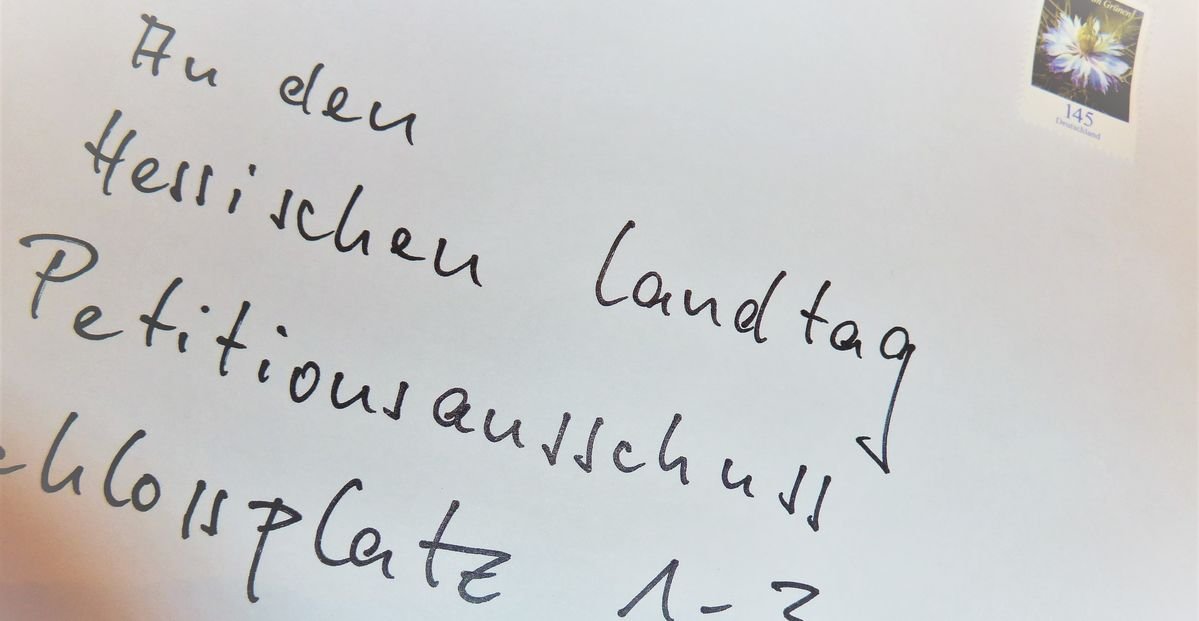 An den
Hessischen Landtag
Petitionsausschuss
chlossplatz 1-3
n Grünen
145
Deutschland